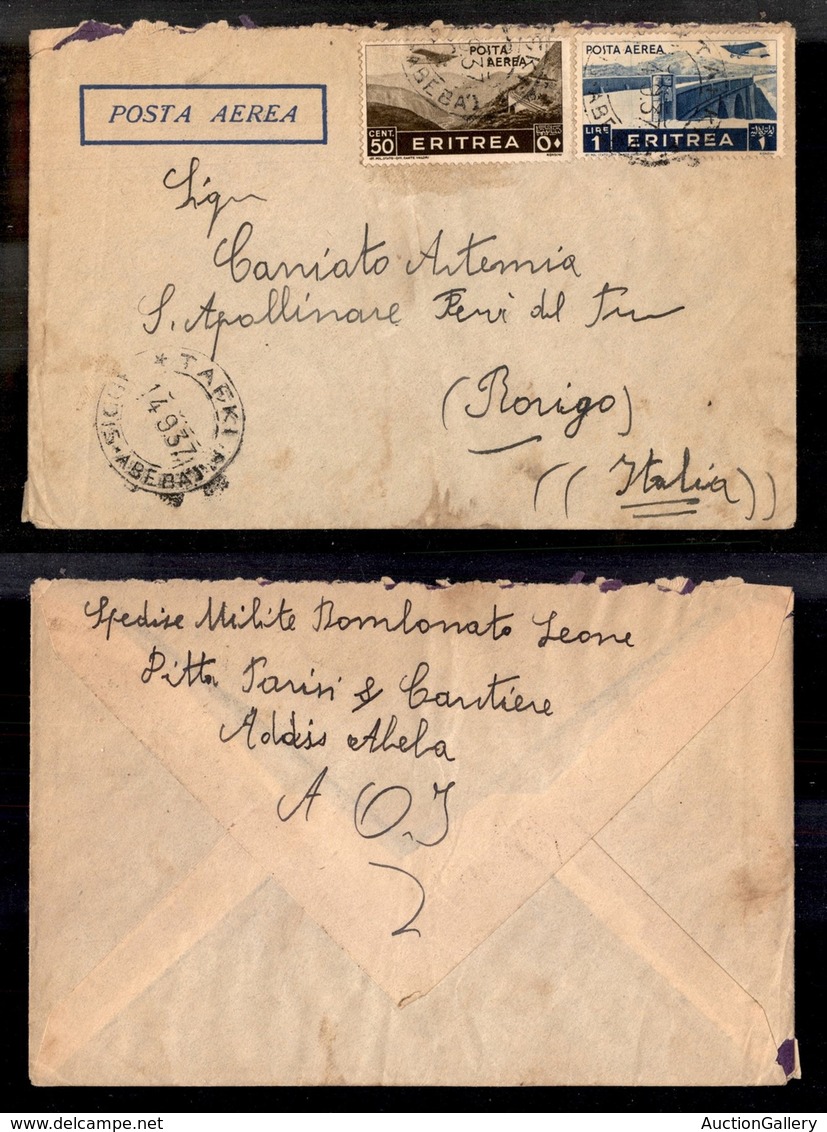 POSTA AEREA
POSTA AEREA
CENT. 50 ERITREA
POSTA AEREA
LIRE 1 ERITREA
Sigra
Caniato Artemia
S. Apollinare
(Rovigo)
((Italia))
TAEKI
14.9.37
ABEBA
Spedise Milite Bombonato Leone
Ditta Parisi & Cantiere
Addis Abeba
A O.I
www.delcampe.net
AuctionGallery